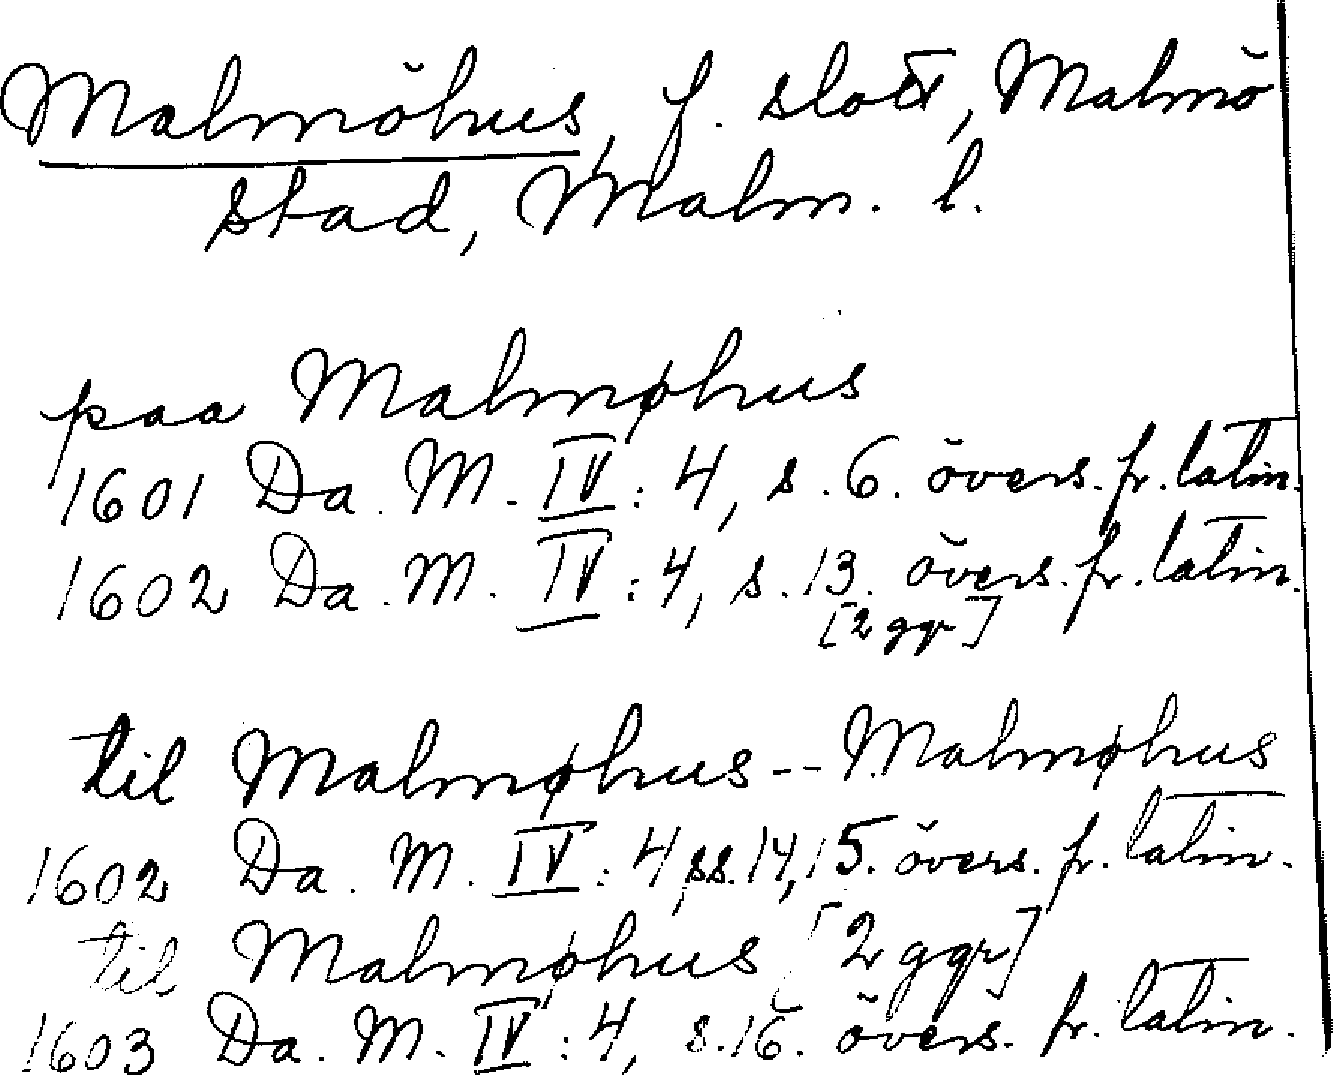 Malmöhus, f. slott, Malmö
stad, Malm. l.
paa Malmøhus
1601 Da. M. IV : 4, s. 6. övers. fr. latin.
1602 Da. M. IV : 4, s. 13. övers. fr. latin.
[2 ggr]
til Malmøhus -- Malmøhus
1602 Da. M. IV : 4, ss. 14, 15. övers. fr. latin.
til Malmøhus [2 ggr]
1603 Da. M. IV : 4, s. 16. övers. fr. latin.